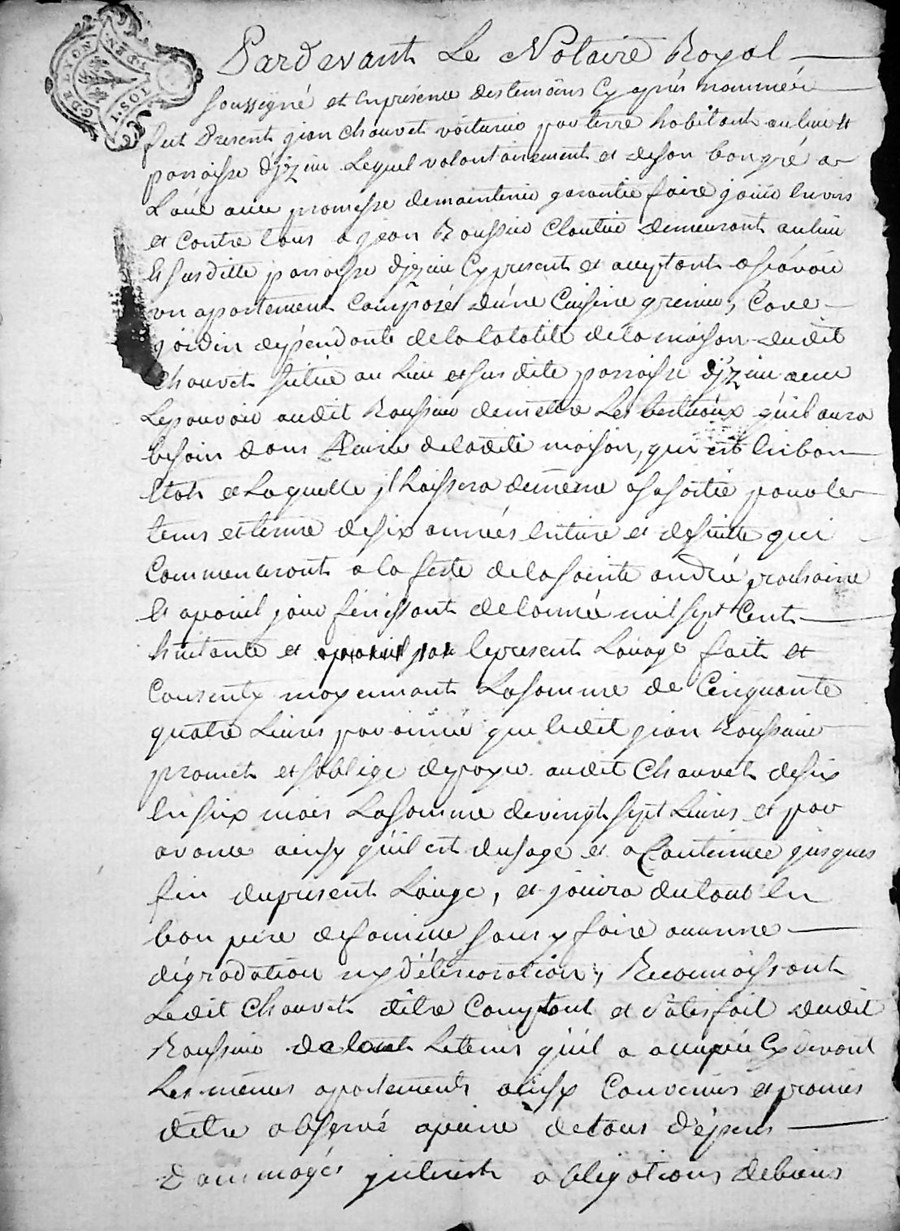 GDE LYON
DEN
1780
Pardevant Le Notaire Royal
soussigné et en presence des temoins Cy après nommée
fut Present jean Chauvet voiturie par terre habitant au lieu et
parroisse d'jzieu Lequel volontairement et de son bon gré a
Loué avec promesse de maintenir garantie faire jouir envers
et contre tous a jean Roussier Cloutier demeurant au lieu
et susditte parroisse d'jzieu Cy present et acceptant a sçavoir
un apartement Composé d'une Cuisine grenier, Cave
jardin dependante de la totalité de la maison dudit
Chauvet scitué au Lieu et susdite parroisse d'jzieu avec
Le pouvoir audit Roussier de mettre Les bestiaux qu'il aura
besoin dans Ecurie de ladite maison, qui est en bon
Etat et Laquelle jl Laissera de meme a sa sortie pour le
tems et terme de six années entiere et de suitte qui
Commenceront a la feste de la sainte andré prochaine
et a pareil jour finissant de l'année mil sept Cent
huitante et le present Louage fait et
Consenty moyennant La somme de Cinquante
quatre Livres par année que ledit jean Roussier
promet et s'oblige de payer audit Chauvet de six
en six mois La somme de vingt sept Livres et par
avance ainsy qu'il est d'usage et a Continuer jusques
fin du present Louage, et jouira du tout en
bon pere de famille sans y faire aucunne
dégradation ny déterioration, Reconnoissant
Ledit Chauvet d'etre Comptent et Satisfait dudit
Roussier de tout Le tems qu'il a occupée Cy devant
Les mêmes apartements ainsy Convenus et promis
d'etre observé a peine de tous dépens
Dammages jnterest obligations de biens